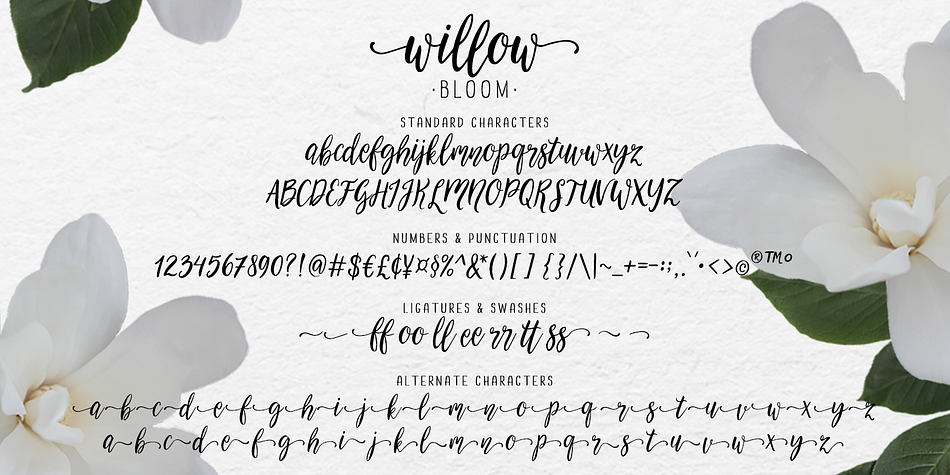 willow
·BLOOM·
STANDARD CHARACTERS
abcdefghijklmnopqrstuvwxyz
ABCDEFGHIJKLMNOPQRSTUVWXYZ
NUMBERS & PUNCTUATION
1234567890?!@#$€£¢¥¤§%^&*()[]{}/\|~_+=-:;,.`'•<>©®™°
LIGATURES & SWASHES
ff oo ll ee rr tt ss
ALTERNATE CHARACTERS
a b c d e f g h i j k l m n o p q r s t u v w x y z
a b c d e f g h i j k l m n o p q r s t u v w x y z